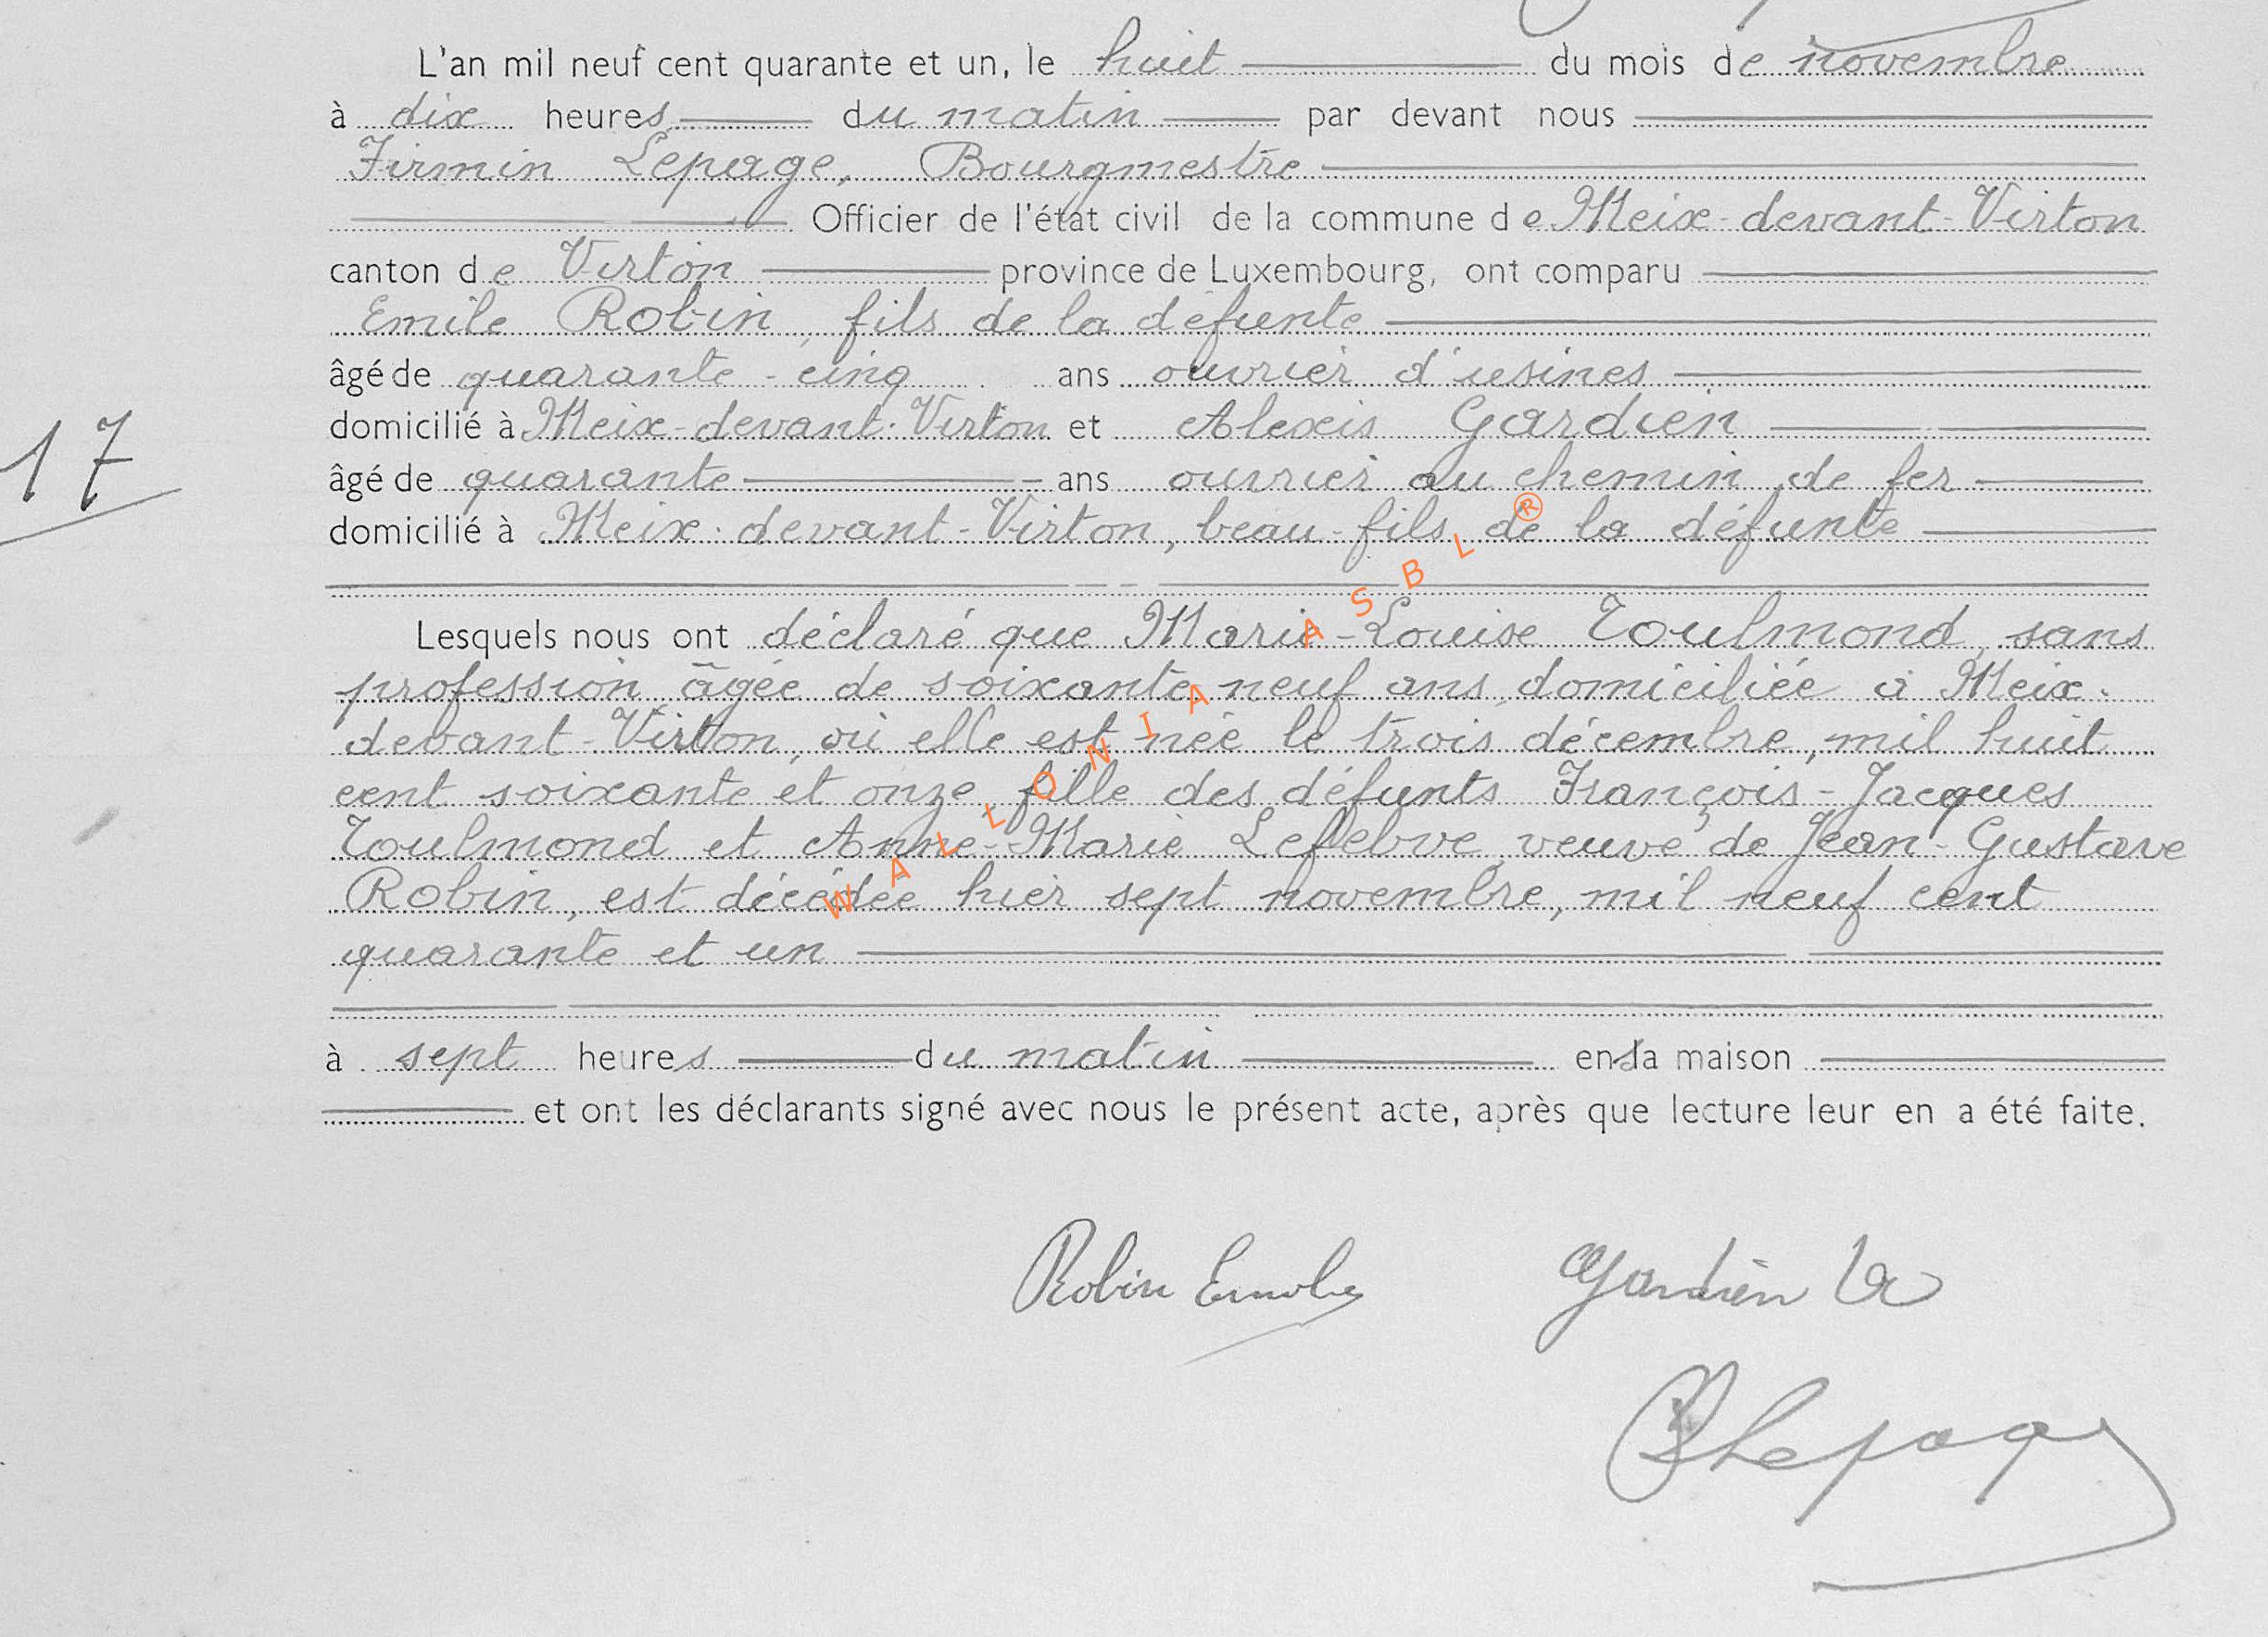 L'an mil neuf cent quarante et un, le huit du mois de novembre
à dix heures du matin par devant nous
Firmin Lepage, Bourgmestre
Officier de l'état civil de la commune de Meix-devant-Virton
canton de Virton province de Luxembourg, ont comparu
Emile Robin, fils de la défunte
âgé de quarante-cinq ans ouvrier d'usines
domicilié à Meix-devant-Virton et Alexis Gardien
17
âgé de quarante ans ouvrier au chemin de fer
domicilié à Meix-devant-Virton, beau-fils de la défunte
Lesquels nous ont déclaré que Marie-Louise Toulmond, sans
profession, âgée de soixante neuf ans, domiciliée à Meix-
devant-Virton, où elle est née le trois décembre, mil huit
cent soixante et onze, fille des défunts François-Jacques
Toulmond et Anne-Marie Lefebvre, veuve de Jean-Gustave
Robin, est décédée hier sept novembre, mil neuf cent
quarante et un
à sept heures du matin en sa maison
et ont les déclarants signé avec nous le présent acte, après que lecture leur en a été faite.
WALLONIA ASBL ®
Robin Gardien
Lepage